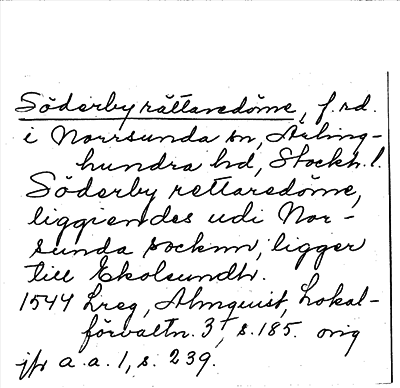 Söderby rättaredöme, f. rd.
i Norrsunda sn, Ärling-
hundra hd, Stockh. l.
Söderby rettaredöme,
liggiendes udi Nor-
sunda socknn, ligger
till Ekolsundh.
1544 Lreg, Almquist, Lokal-
förvaltn. 3, s. 185. orig
jfr a. a. 1, s. 239.